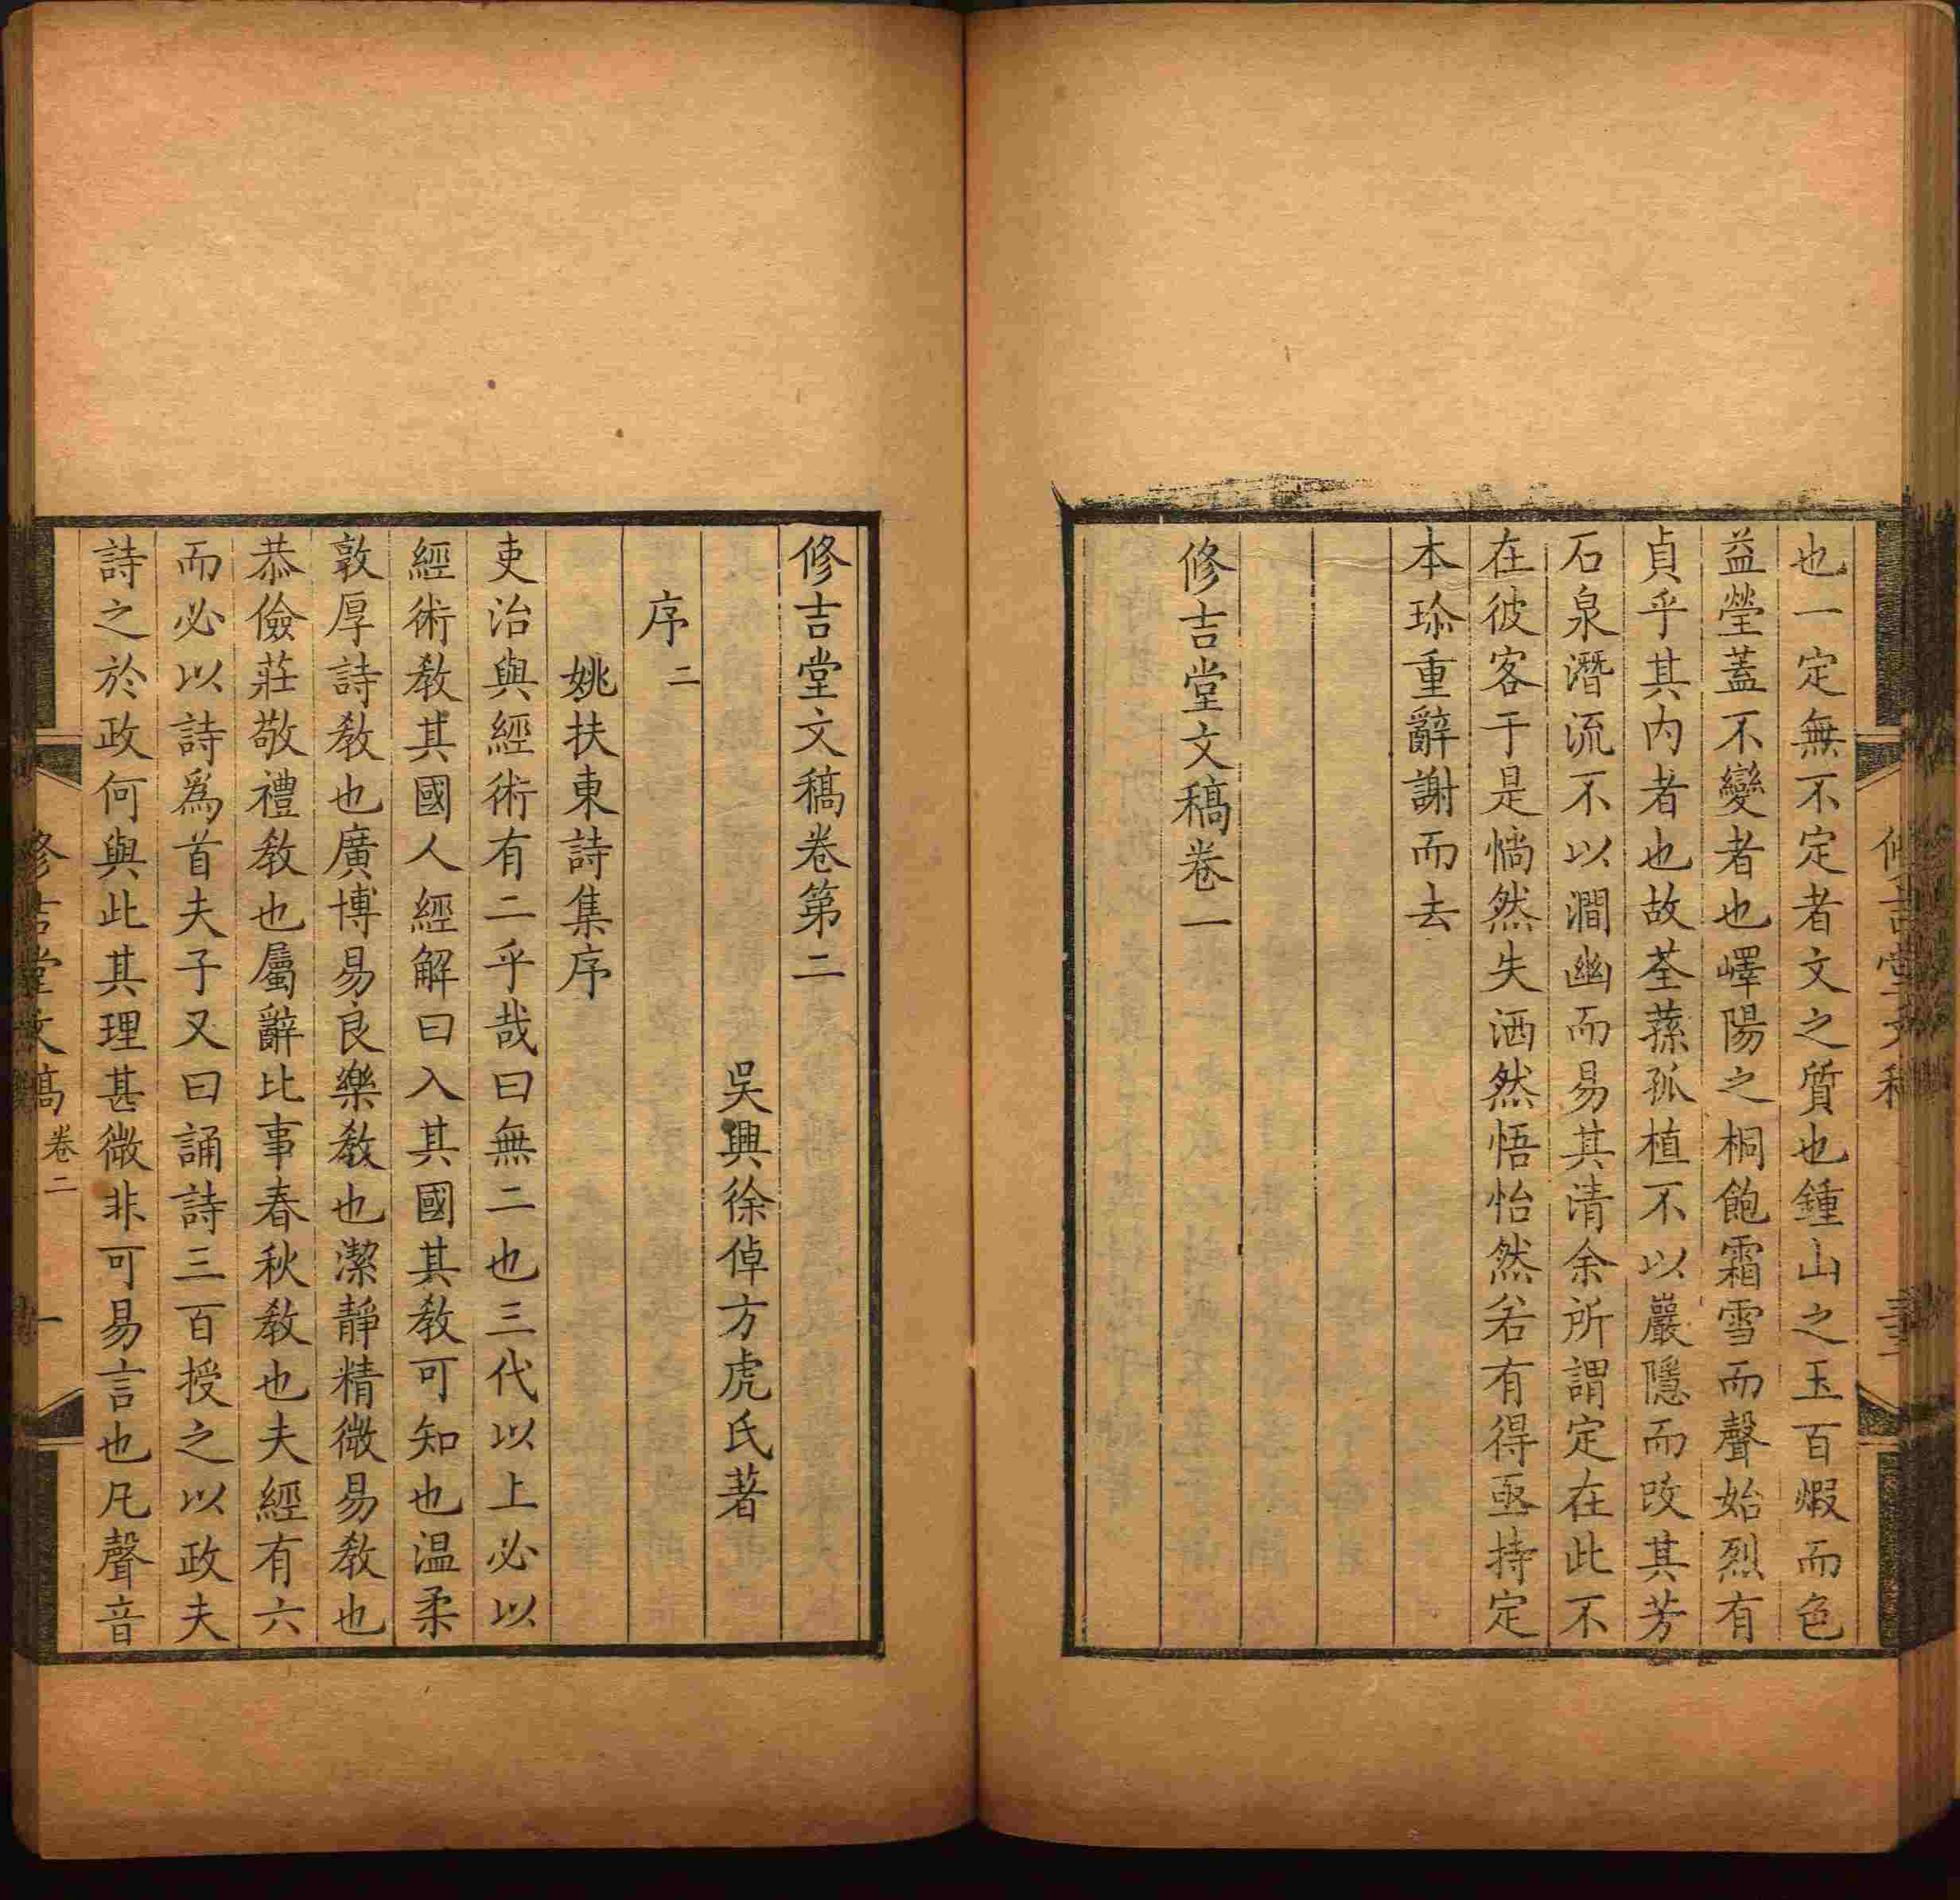 也一定無不定者文之質也鍾山之玉百煅而色
益瑩蓋不變者也嶧陽之桐飽霜雪而聲始烈有
貞乎其内者也故荃蓀孤植不以巖隱而改其芳
石泉潛流不以澗幽而易其清余所謂定在此不
在彼客于是惝然失洒然悟怡然若有得亟持定
本珎重辭謝而去
修吉堂文稿卷一
修吉堂文稿卷第二
吳興徐倬方虎氏著
序二
姚扶東詩集序
吏治與經術有二乎哉曰無二也三代以上必以
經術教其國人經解曰入其國其教可知也温柔
敦厚詩教也廣博易良樂教也潔靜精微易教也
恭儉莊敬禮教也屬辭比事春秋教也夫經有六
而必以詩爲首夫子又曰誦詩三百授之以政夫
詩之於政何與此其理甚微非可易言也凡聲音
修吉堂文稿 卷二 一